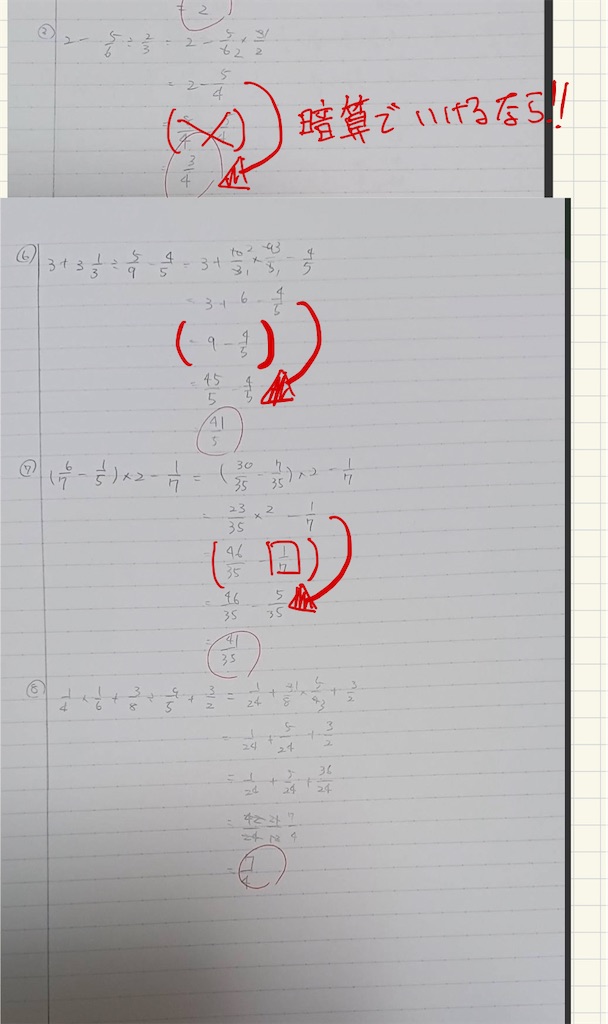 = 2
2 - 5/6 ÷ 2/3 = 2 - 5/6 2 × 3 1/2
= 2 - 5/4
3/4
暗算でいけるなら!!
⑥ 3 + 3 1/3 ÷ 5/9 - 4/5 = 3 + 10 2/3 1 × 9 3/5 1 - 4/5
= 3 + 6 - 4/5
( = 9 - 4/5 )
= 45/5 - 4/5
41/5
⑦ (6/7 - 1/5) × 2 - 1/7 = (30/35 - 7/35) × 2 - 1/7
= 23/35 × 2 - 1/7
( 46/35 - 1/7 )
= 46/35 - 5/35
= 41/35
⑧ 1/4 × 1/6 + 3/8 ÷ 9/5 + 3/2 = 1/24 + 3 1/8 × 5/9 3 + 3/2
= 1/24 + 5/24 + 3/2
= 1/24 + 5/24 + 36/24
= 42/24 21/12 7/4
= 7/4